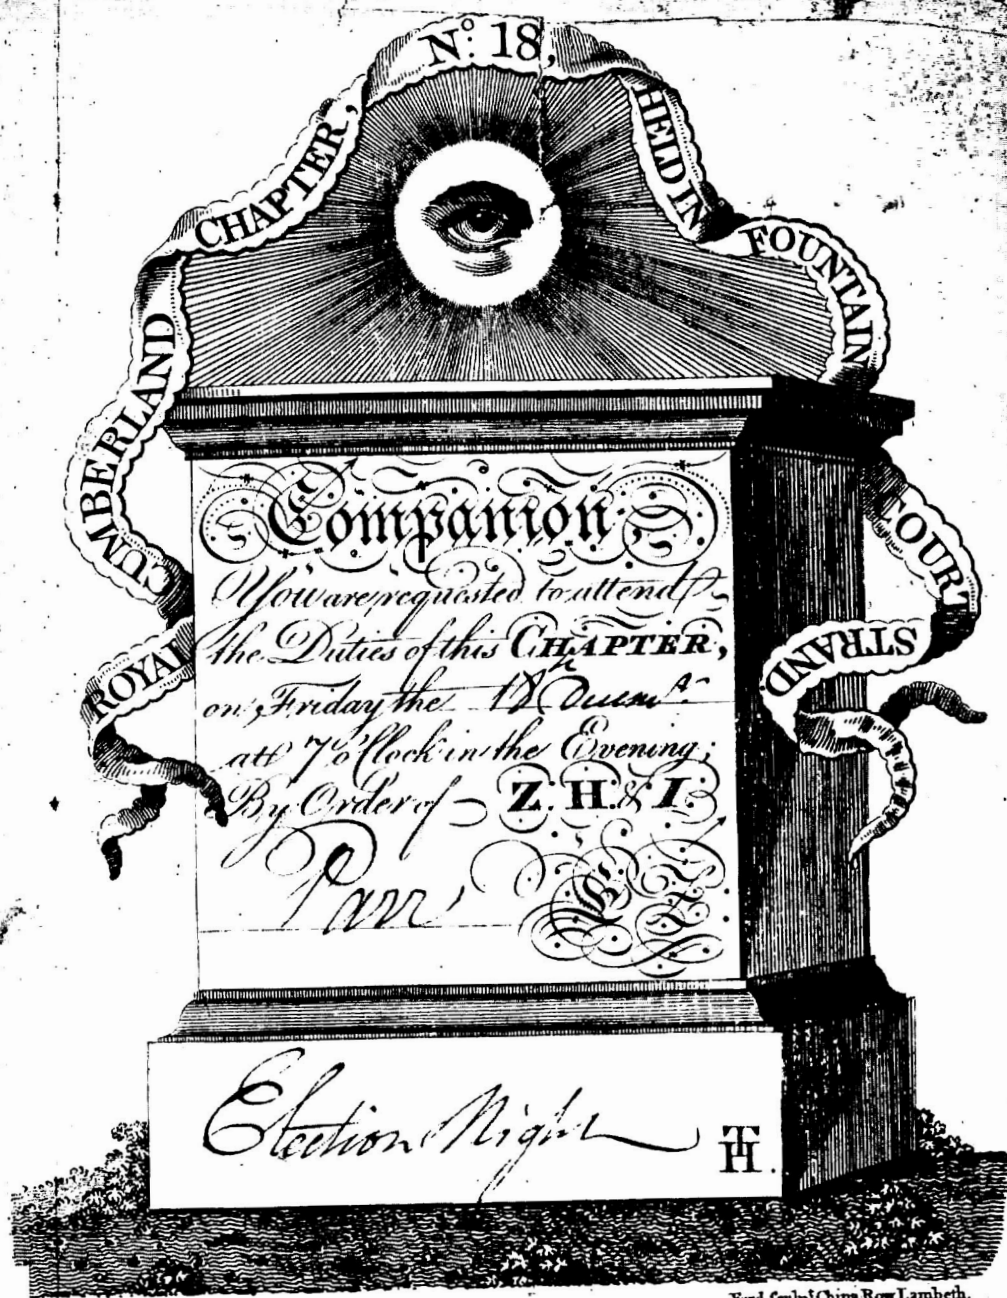 ROYAL CUMBERLAND CHAPTER, Nº. 18, HELD IN FOUNTAIN COURT STRAND.
Companion,
You are requested to attend
the Duties of this CHAPTER,
on Friday the 18th Decemr.
att 7 o'Clock in the Evening;
By Order of Z. H. & I.
Parr
E Z
Election Night
TH.
Sculpt. China Row Lambeth.